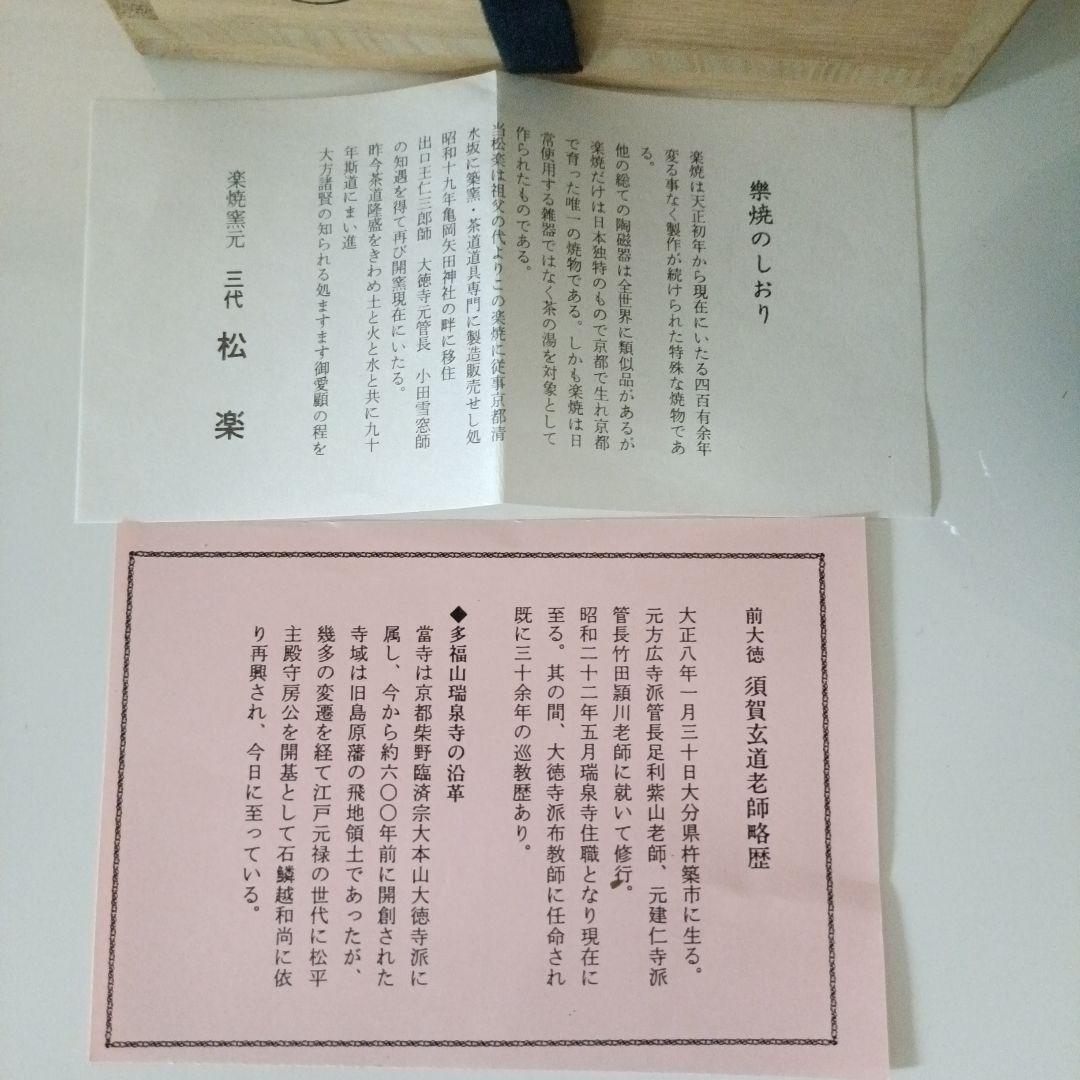 樂焼のしおり
楽焼は天正初年から現在にいたる四百有余年
変る事なく製作が続けられた特殊な焼物であ
る。
他の総ての陶磁器は全世界に類似品があるが
楽焼だけは日本独特のもので京都で生れ京都
で育った唯一の焼物である。しかも楽焼は日
常使用する雑器ではなく茶の湯を対象として
作られたものである。
当松楽は祖父の代よりこの楽焼に従事京都清
水坂に築窯・茶道道具専門に製造販売せし処
昭和十九年亀岡矢田神社の畔に移住
出口王仁三郎師　大徳寺元管長　小田雪窓師
の知遇を得て再び開窯現在にいたる。
昨今茶道隆盛をきわめ土と火と水と共に九十
年斯道にまい進
大方諸賢の知られる処ますます御愛顧の程を
楽焼窯元　三代　松　楽
前大徳　須賀玄道老師略歴
大正八年一月三十日大分県杵築市に生る。
元方広寺派管長足利紫山老師、元建仁寺派
管長竹田頴川老師に就いて修行。
昭和二十二年五月瑞泉寺住職となり現在に
至る。其の間、大徳寺派布教師に任命され
既に三十余年の巡教歴あり。
◆多福山瑞泉寺の沿革
當寺は京都柴野臨済宗大本山大徳寺派に
属し、今から約六〇〇年前に開創された
寺域は旧島原藩の飛地領土であったが、
幾多の変遷を経て江戸元禄の世代に松平
主殿守房公を開基として石鱗越和尚に依
り再興され、今日に至っている。